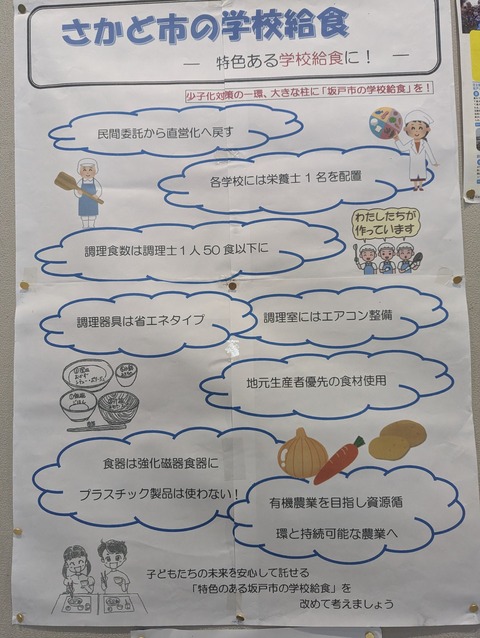 さかど市の学校給食
― 特色ある学校給食に！ ―
少子化対策の一環、大きな柱に「坂戸市の学校給食」を！
民間委託から直営化へ戻す
各学校には栄養士１名を配置
わたしたちが
作っています
調理食数は調理士１人50食以下に
調理器具は省エネタイプ
調理室にはエアコン整備
地元生産者優先の食材使用
食器は強化磁器食器に
プラスチック製品は使わない！
有機農業を目指し資源循
環と持続可能な農業へ
子どもたちの未来を安心して託せる
「特色のある坂戸市の学校給食」を
改めて考えましょう